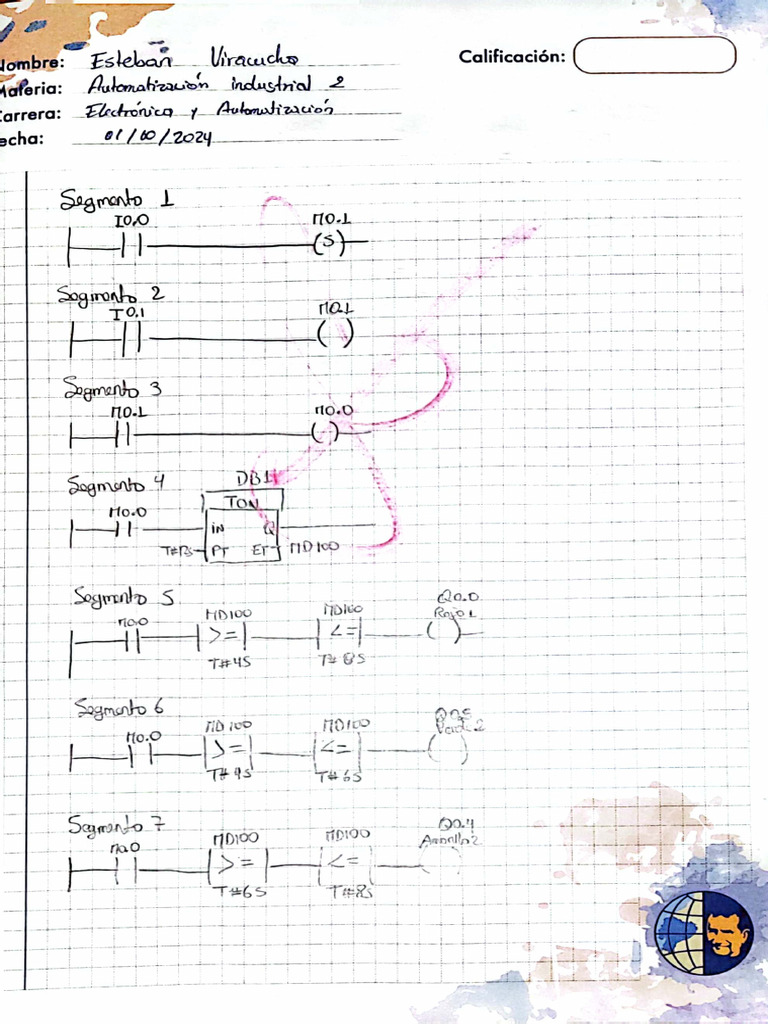 Nombre: Esteban Viracucha
Calificación:
Materia: Automatización industrial 2
Carrera: Electrónica y Automatización
echa: 01/10/2024
Segmento 1
I0.0 M0.1
(S)
Segmento 2
I0.1 M0.1
( )
Segmento 3
M0.1 M0.0
( )
Segmento 4
DB1
TON
M0.0
IN Q
PT ET MD100
Segmento 5
Q0.0
M0.0 MD100 MD100 Rojo1
>= <= ( )
T#4S T#8S
Segmento 6
M0.0 MD100 MD100
>= <= ( )
T#4S T#6S
Segmento 7
Q0.4
M0.0 MD100 MD100 Amarillo2
>= <= ( )
T#6S T#8S